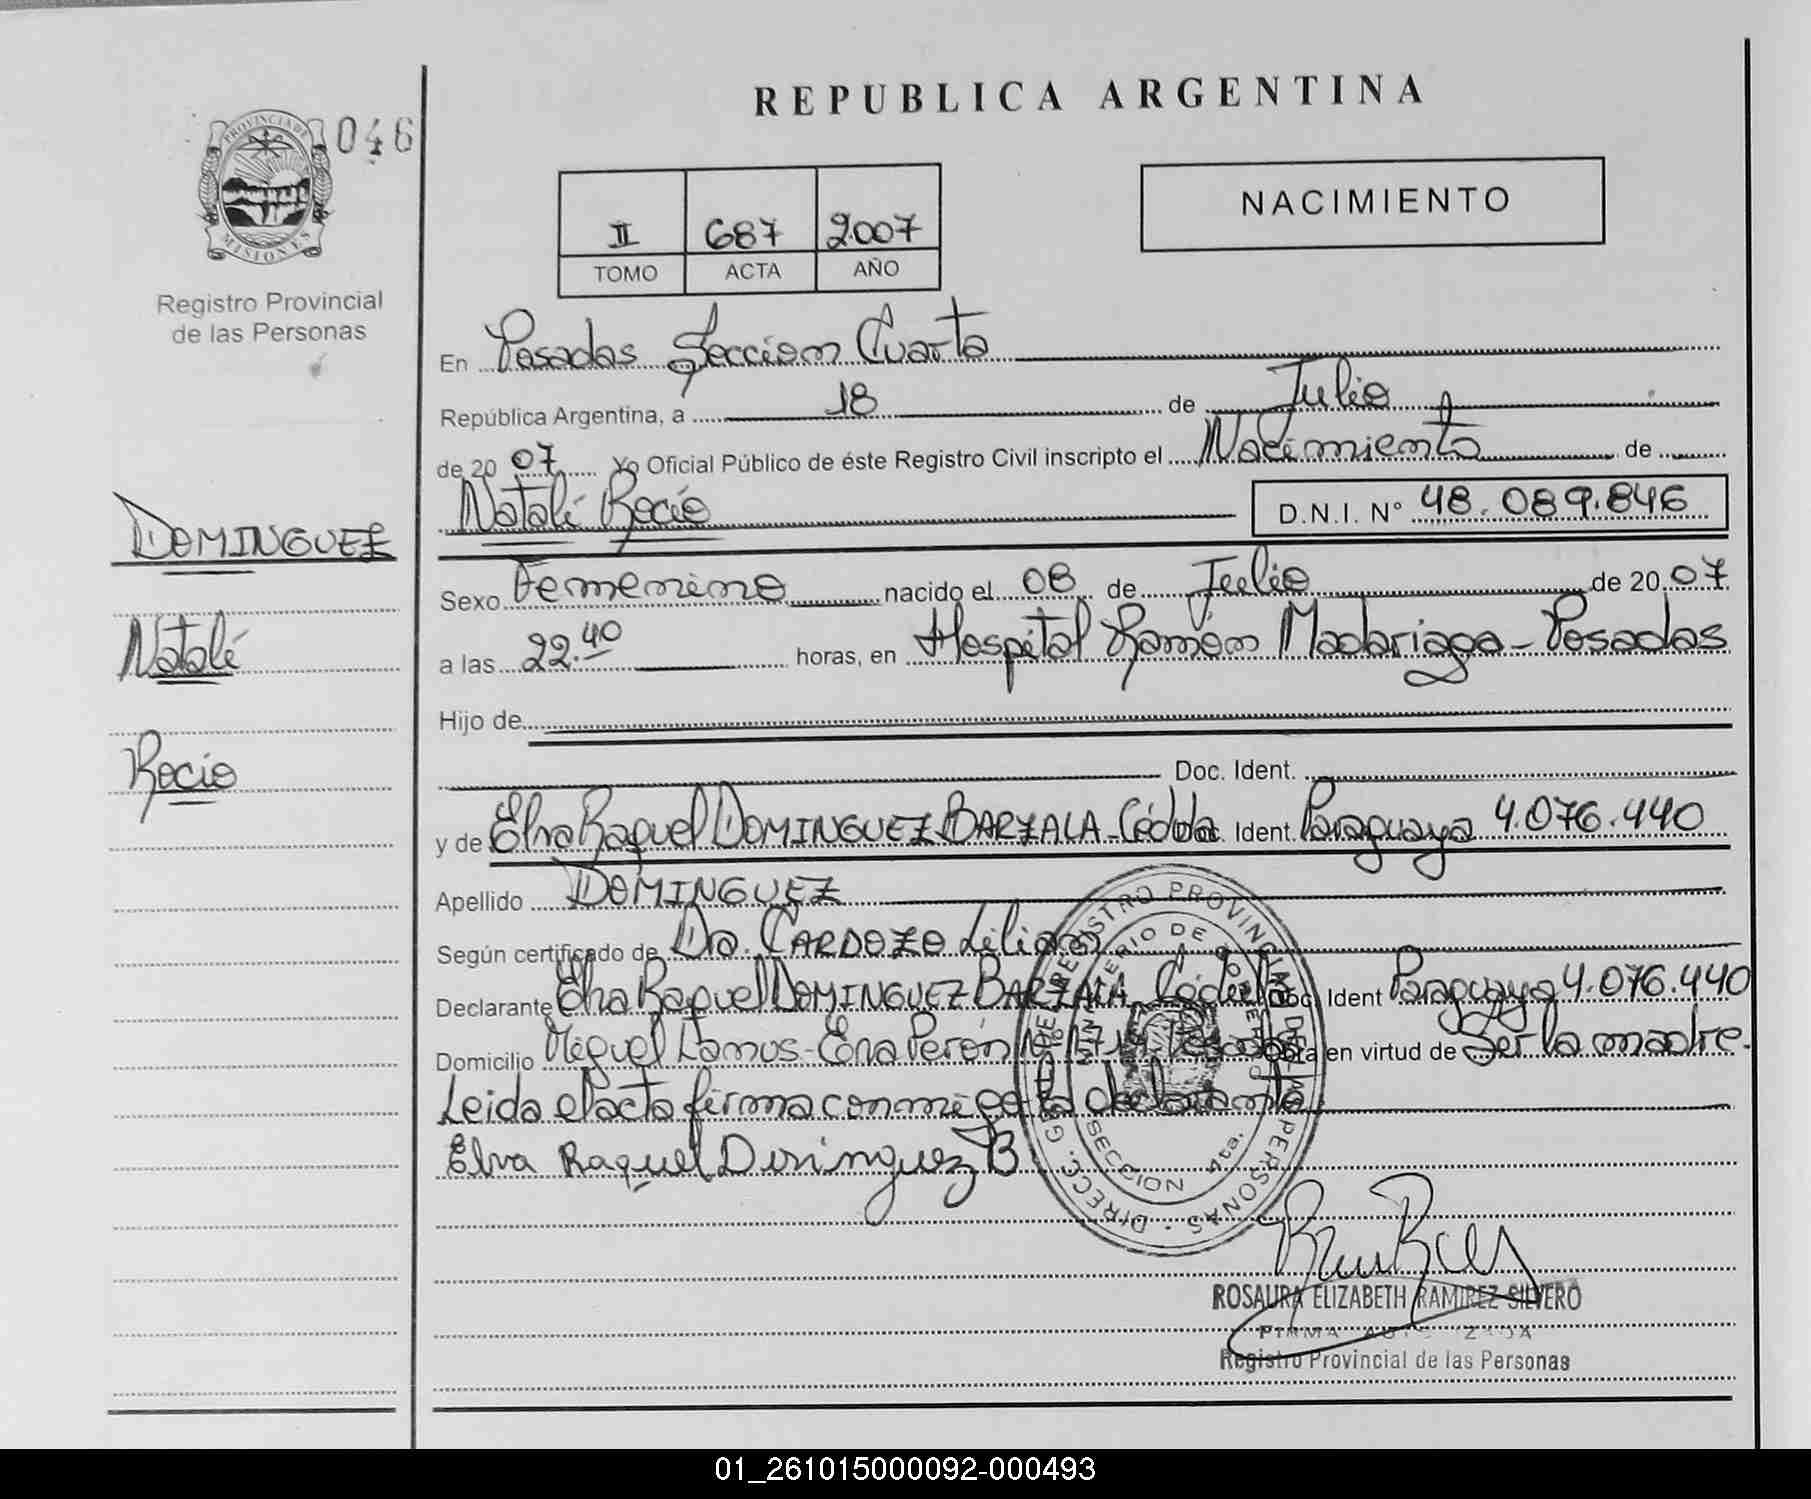 REPUBLICA ARGENTINA
PROVINCIA DE MISIONES
046
Registro Provincial
de las Personas
II 687 2007
TOMO ACTA AÑO
NACIMIENTO
En Posadas Seccion Cuarta
República Argentina, a 18 de Julio
de 2007 Yo Oficial Público de éste Registro Civil inscripto el Nacimiento de
Natalí Rocío D.N.I. N° 48.089.846
DOMINGUEZ
Natalí
Rocío
Sexo Femenino nacido el 08 de Julio de 2007
a las 22.40 horas, en Hospital Ramón Madariaga - Posadas
Hijo de
Doc. Ident.
y de Elva Raquel DOMINGUEZ BARZALA - Cédula Doc. Ident. Paraguaya 4.076.440
Apellido DOMINGUEZ
Según certificado de Dra. CARDOZO Lilian
Declarante Elva Raquel DOMINGUEZ BARZALA Cédula Doc. Ident Paraguaya 4.076.440
Domicilio Miguel Lanus - Eva Perón Obra en virtud de Ser la madre.
Leida el acta firma conmigo la declarante
Elva Raquel Dominguez B
DIRECC. GRAL. DE REGISTRO PROVINCIAL DE LAS PERSONAS
MINISTERIO DE GOBIERNO
SECCION 4ta.
ROSAURA ELIZABETH RAMIREZ SILVERO
FIRMA AUTORIZADA
Registro Provincial de las Personas
01_261015000092-000493